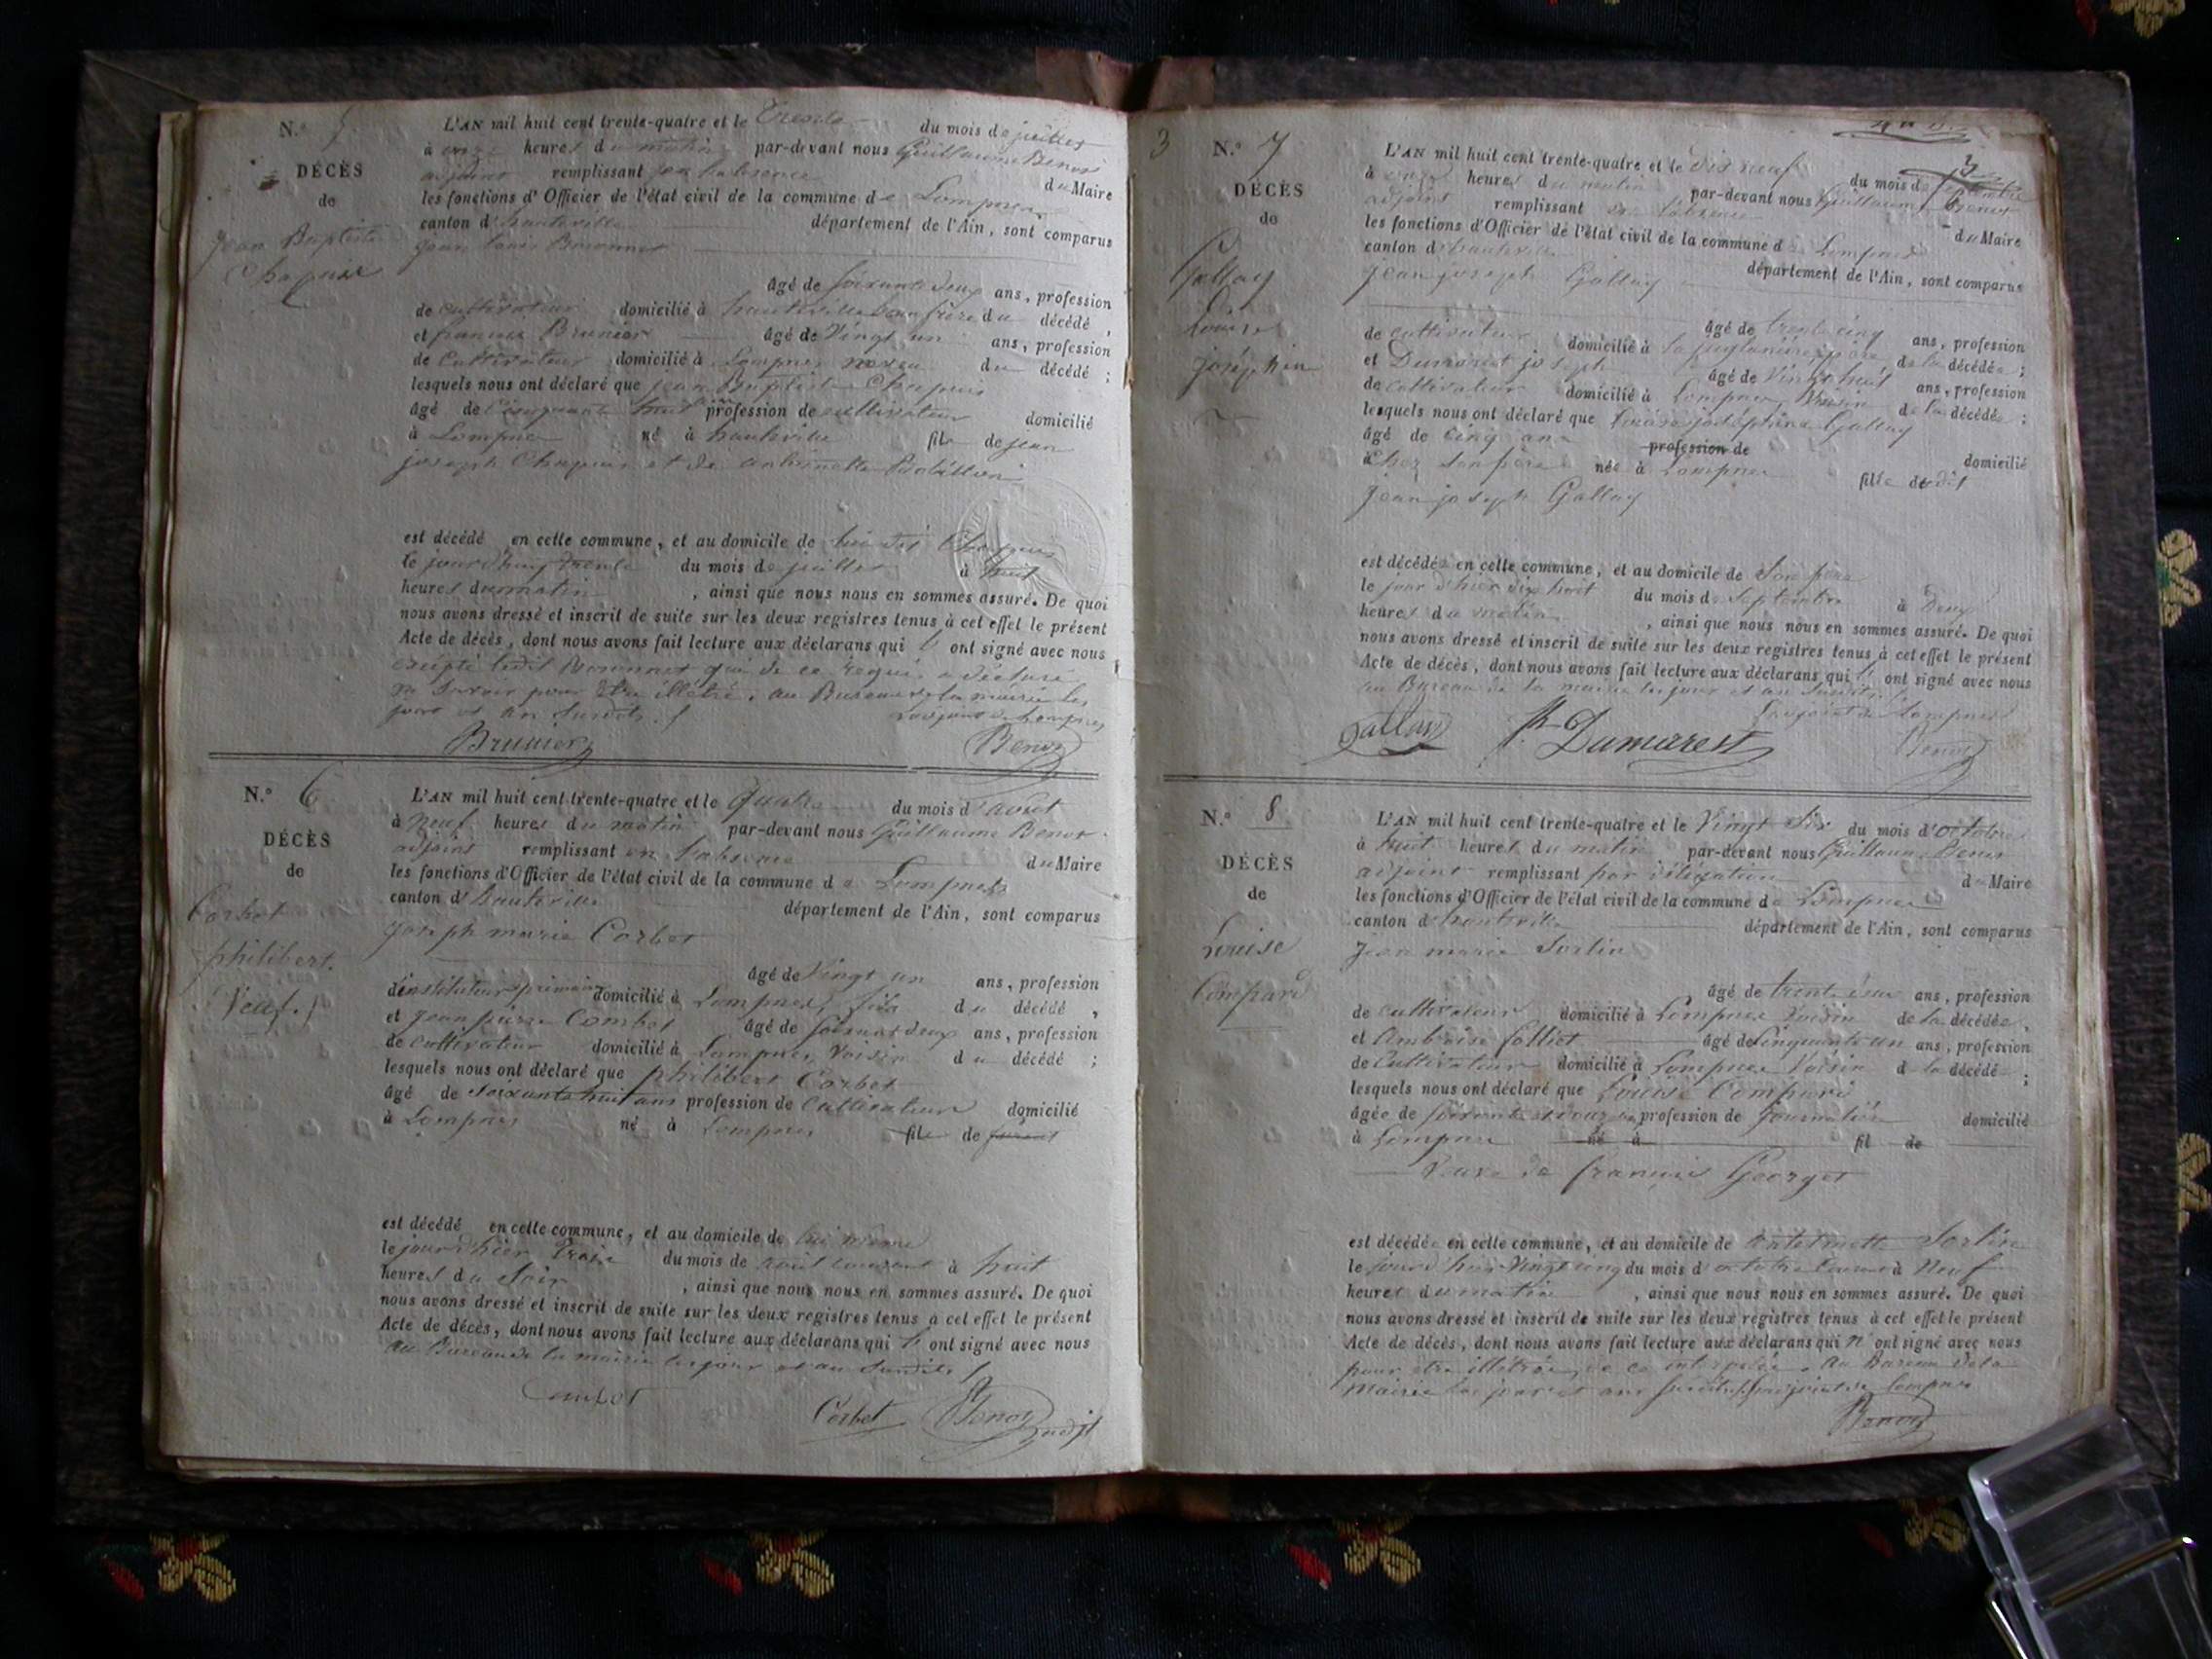 N.° 5
DÉCÈS
de
Jean Baptiste
Chapuis
L'AN mil huit cent trente-quatre et le trente du mois de juillet
à onze heures du matin par-devant nous Guillaume Benoit
adjoint remplissant en l'absence du Maire
les fonctions d'Officier de l'état civil de la commune de Lompnes
canton d'hauteville département de l'Ain, sont comparus
Jean Louis
âgé de soixante deux ans, profession
de cultivateur domicilié à hauteville beau frère du décédé,
et françois Brunier âgé de Vingt un ans, profession
de Cultivateur domicilié à Lompnes neveu du décédé;
lesquels nous ont déclaré que jean Baptiste Chapuis
âgé de Cinquante huit ans profession de cultivateur domicilié
à Lompnes né à hauteville fils de jean
joseph Chapuis et de antoinette
est décédé en cette commune, et au domicile de lui dit Chapuis
le jourd'huy trente du mois de juillet à huit
heures du matin, ainsi que nous nous en sommes assuré. De quoi
nous avons dressé et inscrit de suite sur les deux registres tenus à cet effet le présent
Acte de décès, dont nous avons fait lecture aux déclarans qui ont signé avec nous
excepté ledit qui de ce requis a déclaré
ne savoir pour être illétré. au Bureau de la mairie les
jour et an susdits.
L'adjoint de Lompnes
Brunier Benoit
N.° 6
DÉCÈS
de
Corbet
philibert.
Veuf.
L'AN mil huit cent trente-quatre et le quatre du mois d'aout
à neuf heures du matin par-devant nous Guillaume Benoit
adjoint remplissant en l'absence du Maire
les fonctions d'Officier de l'état civil de la commune de Lompnes
canton d'hauteville département de l'Ain, sont comparus
joseph marie Corbet
âgé de Vingt un ans, profession
d'instituteur primaire domicilié à Lompnes, fils du décédé,
et jean pierre Combet âgé de soixante deux ans, profession
de cultivateur domicilié à Lompnes, Voisin du décédé;
lesquels nous ont déclaré que philibert Corbet
âgé de soixante huit ans profession de cultivateur domicilié
à Lompnes né à Lompnes fils de
est décédé en cette commune, et au domicile de lui même
le jour d'hier Trois du mois de aout courant à huit
heures du Soir, ainsi que nous nous en sommes assuré. De quoi
nous avons dressé et inscrit de suite sur les deux registres tenus à cet effet le présent
Acte de décès, dont nous avons fait lecture aux déclarans qui ont signé avec nous
au Bureau de la mairie les jour et an susdits
Combet
Corbet Benoit adjt
3
N.° 7
DÉCÈS
de
Gallay
Louise
joséphine
3
L'AN mil huit cent trente-quatre et le dix neuf du mois de septembre
à onze heures du matin par-devant nous Guillaume Benoit
adjoint remplissant en l'absence du Maire
les fonctions d'Officier de l'état civil de la commune de Lompnes
canton d'hauteville département de l'Ain, sont comparus
jean joseph Gallay
âgé de trente cinq ans, profession
de cultivateur domicilié à père de la décédée;
et Dumarest joseph âgé de Vingt huit ans, profession
de cultivateur domicilié à Lompnes Voisin de la décédée;
lesquels nous ont déclaré que Louise joséphine Gallay
âgé de cinq ans profession de domicilié
à chez son père née à Lompnes fille dudit
jean joseph Gallay
est décédée en cette commune, et au domicile de Son père
le jour d'hier dix huit du mois de Septembre à Deux
heures du matin, ainsi que nous nous en sommes assuré. De quoi
nous avons dressé et inscrit de suite sur les deux registres tenus à cet effet le présent
Acte de décès, dont nous avons fait lecture aux déclarans qui ont signé avec nous
au Bureau de la mairie les jour et an susdits.
L'adjoint de Lompnes
Gallay Dumarest Benoit
N.° 8
DÉCÈS
de
Louise
Compard
L'AN mil huit cent trente-quatre et le Vingt Six du mois d'octobre
à huit heures du matin par-devant nous Guillaume Benoit
adjoint remplissant par délégation du Maire
les fonctions d'Officier de l'état civil de la commune de Lompnes
canton d'hauteville département de l'Ain, sont comparus
jean marie Sorlin
âgé de trente deux ans, profession
de cultivateur domicilié à Lompnes Voisin de la décédée,
et Ambroise Colliet âgé de Cinquante un ans, profession
de Cultivateur domicilié à Lompnes Voisin de la décédée;
lesquels nous ont déclaré que Louise Compard
âgée de soixante et douze ans profession de journalière domicilié
à Lompnes né à fil de
Veuve de françois Georget
est décédée en cette commune, et au domicile de antelmette Sorlin
le jour d'hier Vingt cinq du mois d'octobre courant à Neuf
heures du matin, ainsi que nous nous en sommes assuré. De quoi
nous avons dressé et inscrit de suite sur les deux registres tenus à cet effet le présent
Acte de décès, dont nous avons fait lecture aux déclarans qui n'ont signé avec nous
pour être illetrés de ce interpelés. au Bureau de la
mairie les jour et an susdits. L'adjoint de Lompnes
Benoit